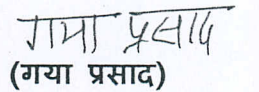 गया प्रसाद
(गया प्रसाद)